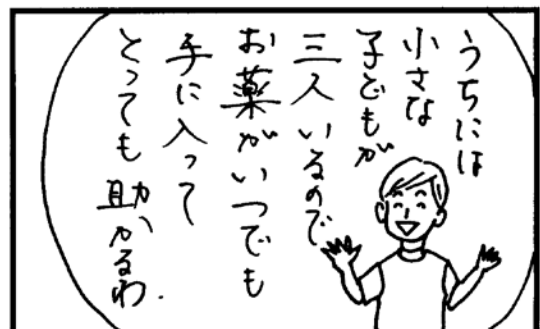 うちには
小さな
子どもが
三人いるので
お薬がいつでも
手に入って
とっても助かるわ.